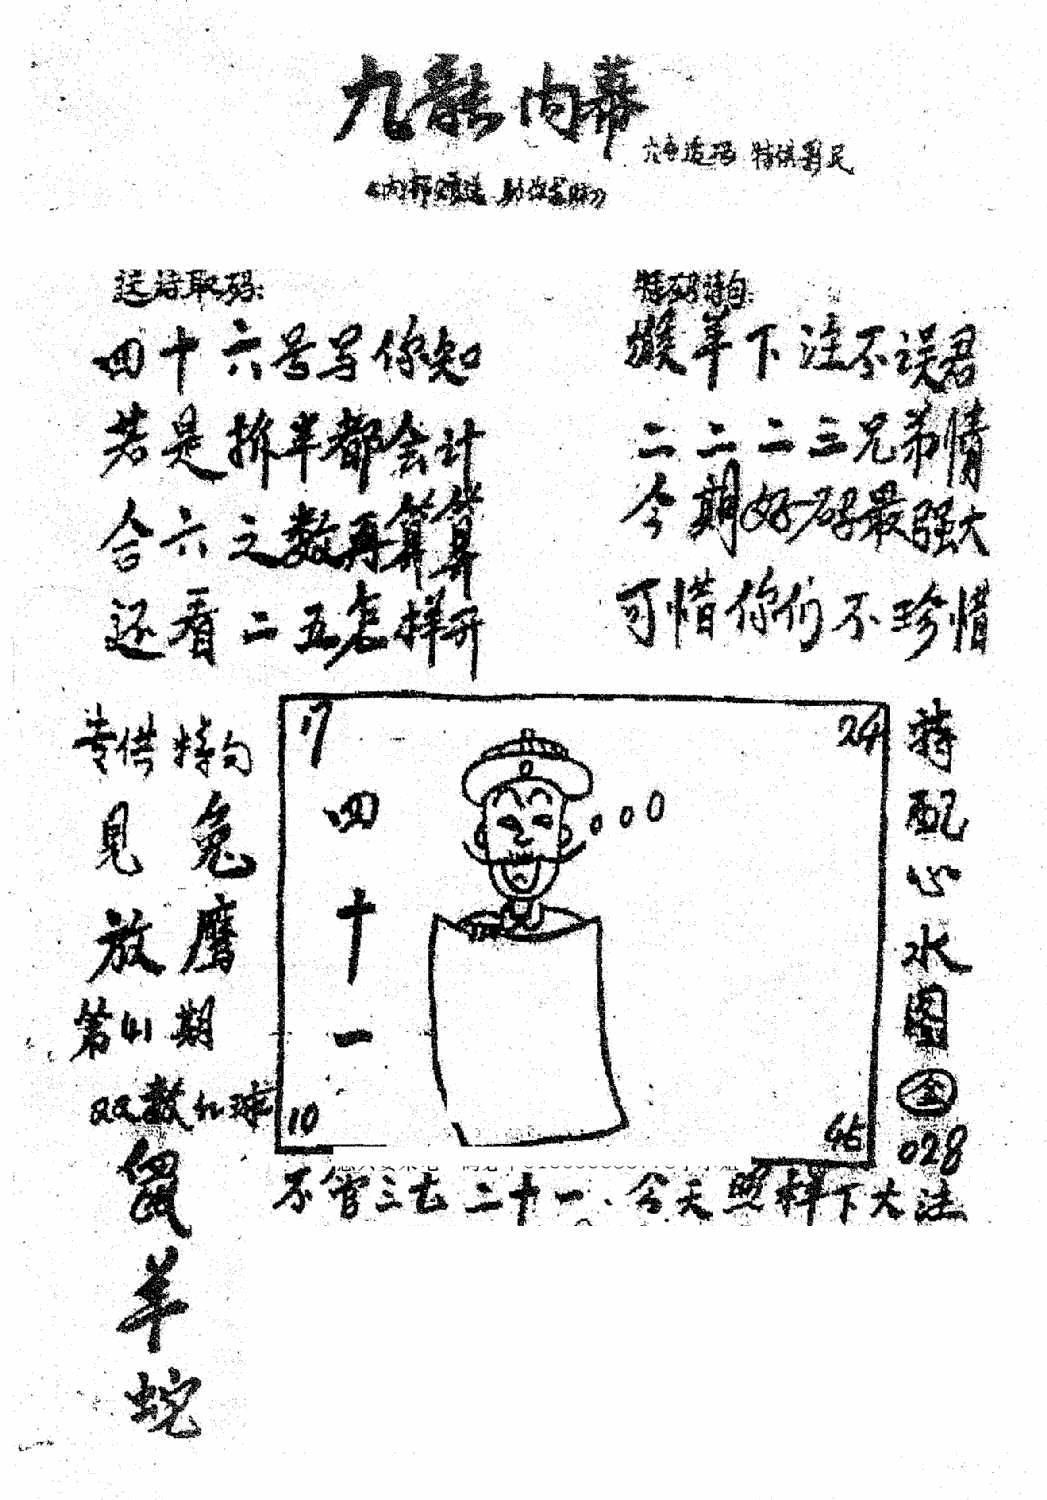 九龙内幕
六合透码 特供彩民
送特取码:
四十六号写你知
若是拆半都会计
合六之数再算算
还看二五怎样开
特码诗句:
猴羊下注不误君
二二二三兄弟情
今期好码最强大
可惜你们不珍惜
专供特句
见兔
放鹰
第41期
双数红球
鼠
羊
蛇
17
24
四十一
10
45
特配心水图
金
028
不管三七二十一、今天照样下大注